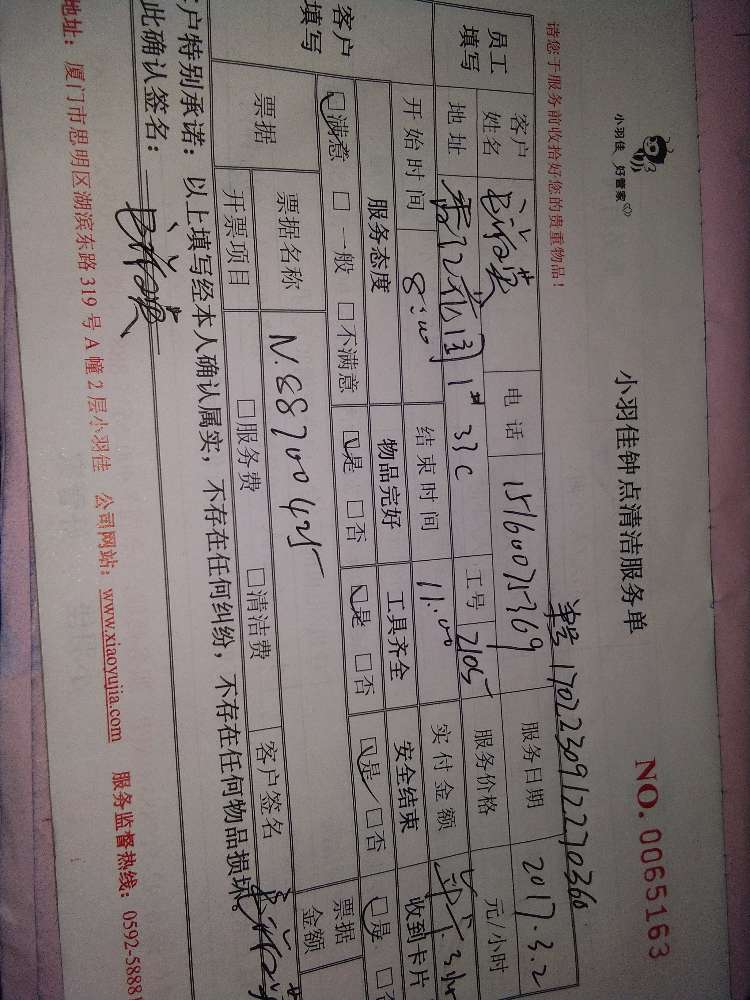 小羽佳 好管家
小羽佳钟点清洁服务单
NO. 0065163
请您于服务前收拾好您的贵重物品!
单号 1702230912270360
员工填写 客户姓名 电话 15160075369 服务日期 2017.3.2
地址 1# 33C 工号 2105 服务价格 元/小时
开始时间 8:00 结束时间 11:00 实付金额 3.hr
客户填写 服务态度 物品完好 工具齐全 安全结束 收到卡片
☑满意 □一般 □不满意 ☑是 □否 ☑是 □否 ☑是 □否 □是 □否
票据 票据名称 N.88700425 票据金额
开票项目 □服务费 □清洁费 客户签名
客户特别承诺:以上填写经本人确认属实,不存在任何纠纷,不存在任何物品损坏。
此确认签名:
地址:厦门市思明区湖滨东路 319 号 A 幢 2 层小羽佳 公司网站:www.xiaoyujia.com 服务监督热线:0592-58881